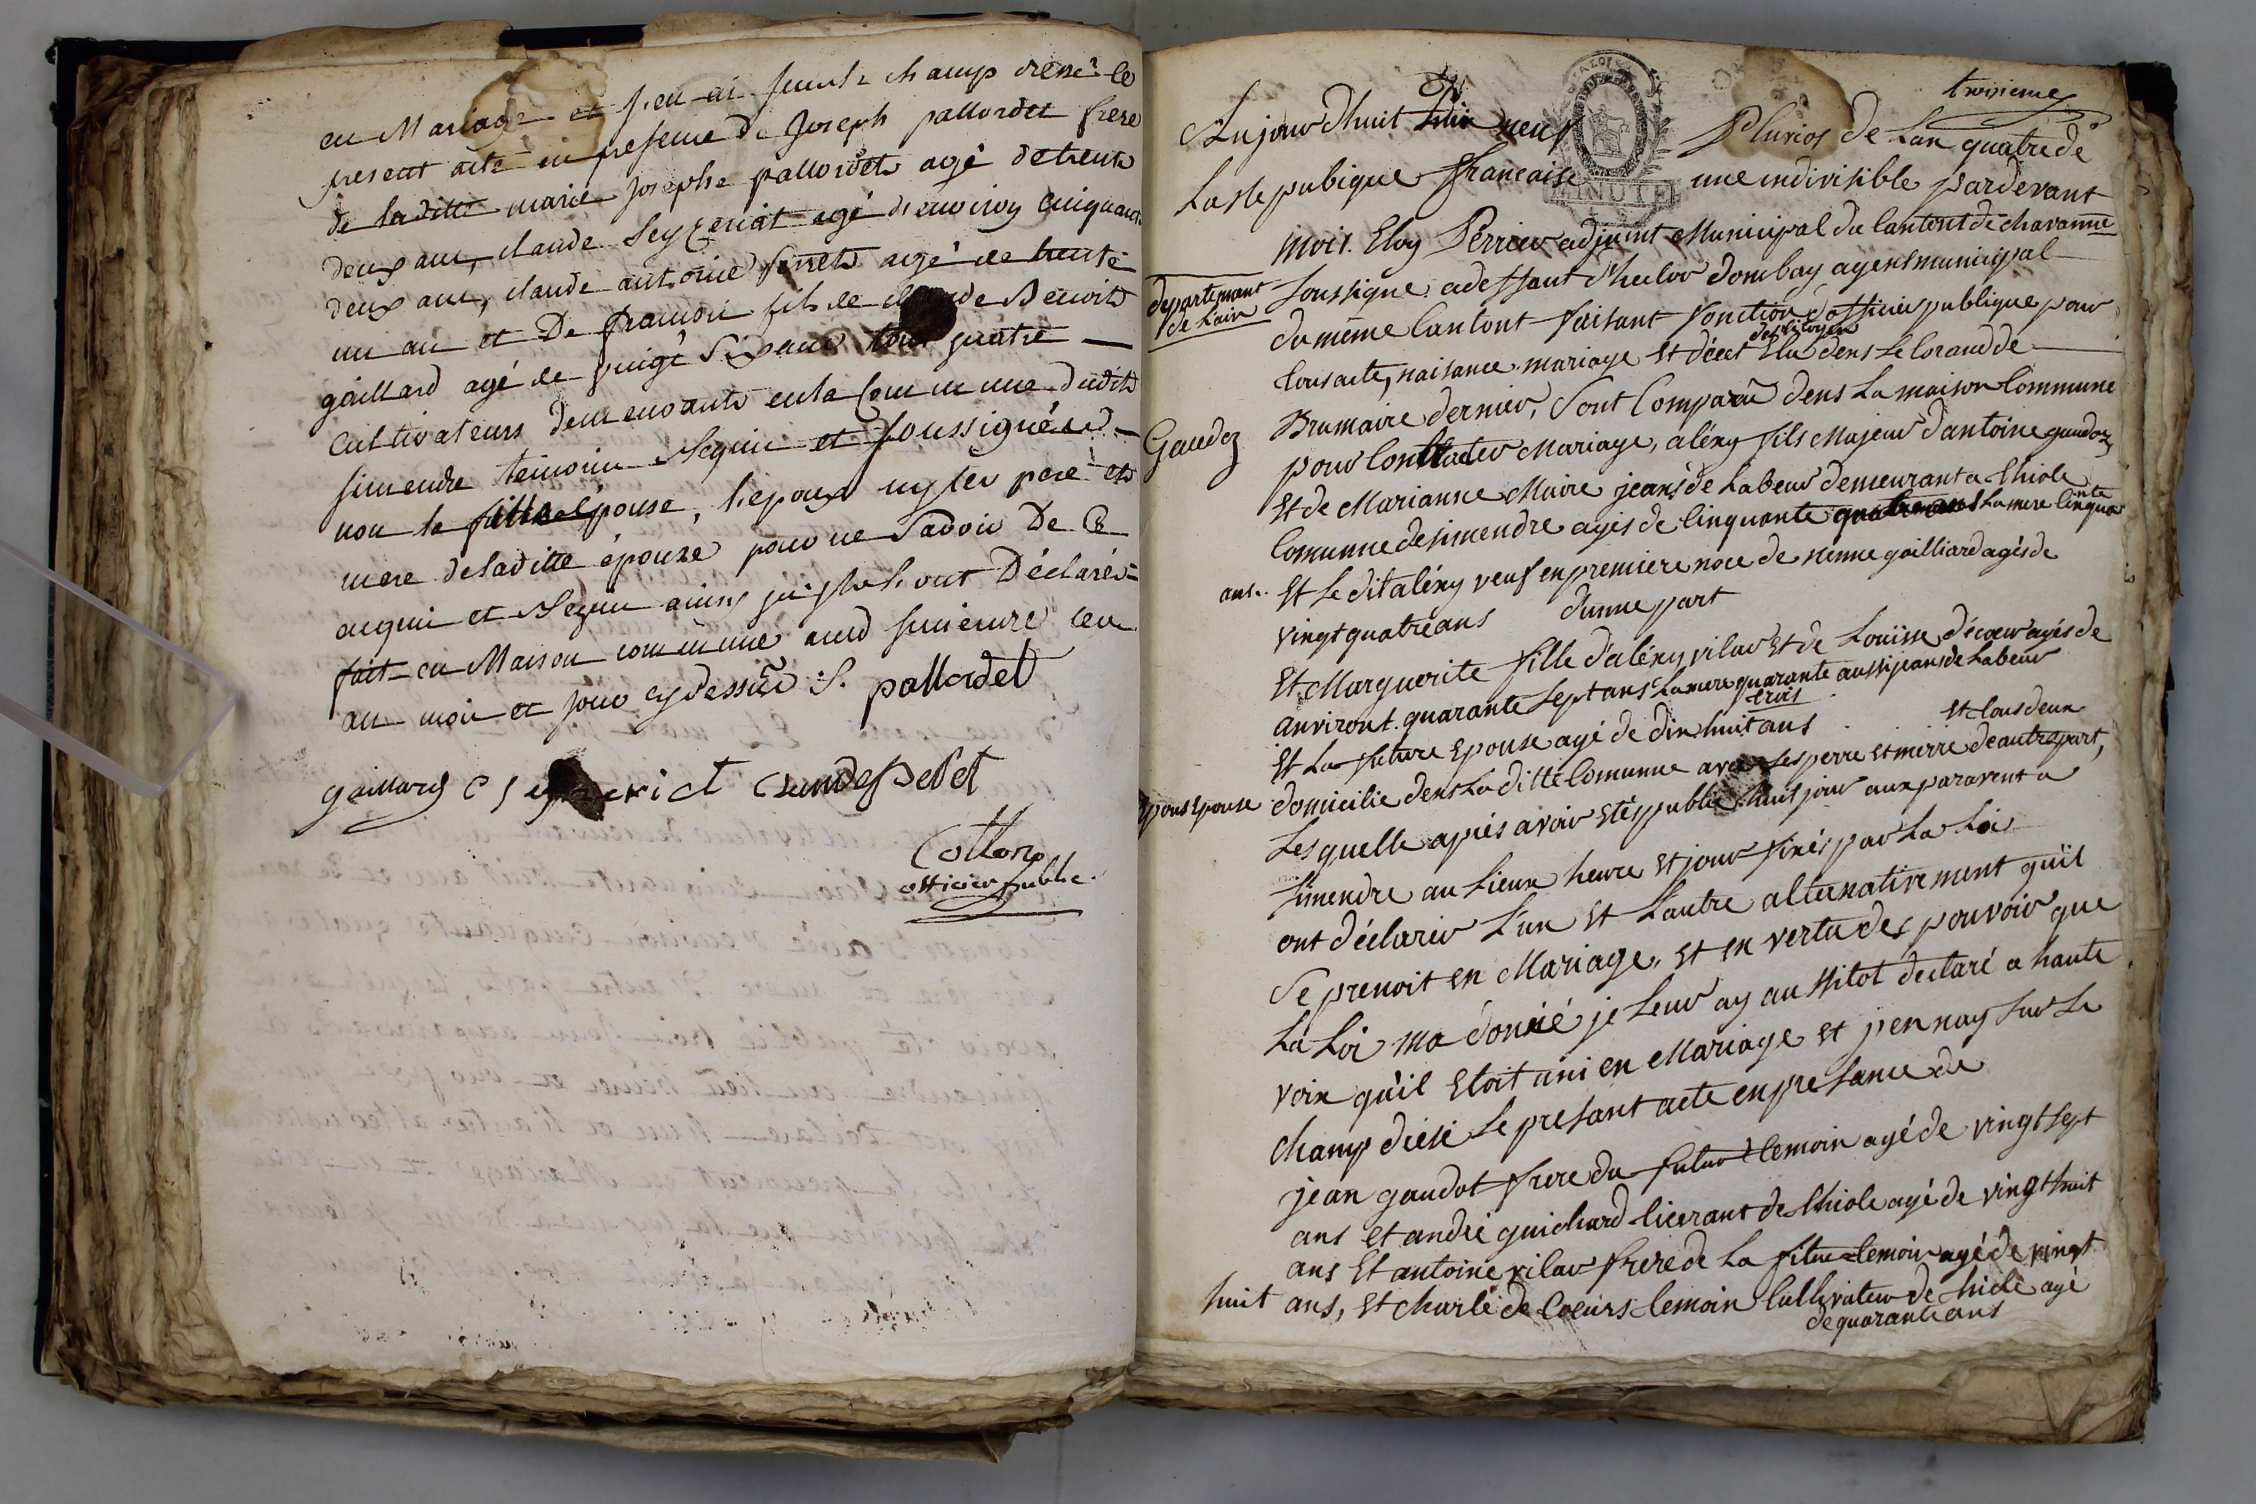 en Mariage et j'en ai sur le champ dressé le
present acte en presence de Joseph pallordet frere
de laditte marie Josephe pallordet agé de trente
deux ans, claude Seyzeriat agé d'environ cinquante
deux ans, claude antoine perret agé de trente
un an et De francoi fils de claude Benoit
gaillard agé de vingt Six ans tous quatre
Cultivateurs demeurants en la Commune dudit
simendre témoins Requis et soussignés
non la épouse, l'epoux ny les pere et
mere de laditte épouze pour ne Savoir De Ce
enquis et Requis ainsy qu'ils l'ont Déclarés
fait en Maison commune aud simendre les
an moi et jour cy dessus J. pallordet
gaillard C Seyzeriat Claude peret
Cotton
officier public
troisieme
Aujourdhuit neuf Pluvios de Lan quatre de
La Republique francaise une indivisible pardevant
MINUTE
mois. Eloy Perrier adjoint Municipal du Cantont de chavanne
departemant de Lain
soussigne a deffaut d'heclor dombay agent municipal
du même Cantont faisant fonction dofficier publique pour
tous acte, naisance mariage Et décet Elu dens Le Corand de
des Citoyen
Brumaire dernier, Sont Comparu dens La maison Commune
Gaudoz
pour Contracter Mariage, aléxy fils Majeur d'antoine gaudoz
Et de Marianne Moire jeans de Labeur demeurant a thiole
Comunne de simendre agés de Cinquante La mere Cinquante
ans. Et Le dit aléxy veuf en premiere noce de nemme gailliard agés de
vingt quatre ans dunne part
Et Marguerite fille daléxy vilar Et de Louisse décoeur agés de
anviront quarante Sept ans La mere quarante trois aussi jeans de Labeur
Et La future Epouse agé de dix huit ans Et tous deux
Epouse domicilie dens La ditte Comunne avec Ses perre Et merre de autre part,
Les quelle apres avoir Etés publie huit jour aux paravent a
Simendre au Lieux heure Et jour fixés par La Loi
ont déclarer L'un Et Lautre alternativement quil
Se prenoit en Mariage, Et en vertu des pouvoir que
La Loi ma donné je Leur ay aussitot declaré a haute
voix quil Etoit uni en Mariage Et jen nay sur Le
champ diésé Le presant acte en presance de
jean gaudot frere du futur temoin agé de vingt sept
ans Et andré guichard de thiole agé de vingt huit
ans Et antoine vilar frere de La futue temoin agé de vingt
huit ans, Et charle de Coeurs temoin Cultivateur de thiole agé
de quarante ans